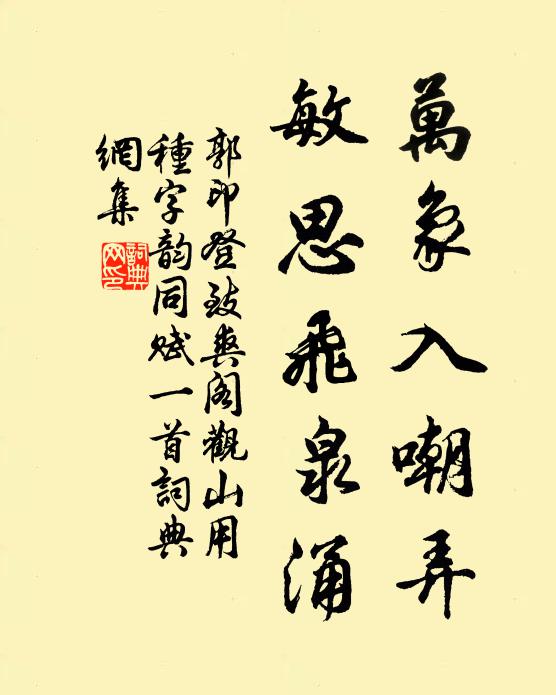 萬象入嘲弄
敏思飛泉涌
郭印登致爽閣觀山用
種字韵同賦一首詞典
網集
詞典
网印